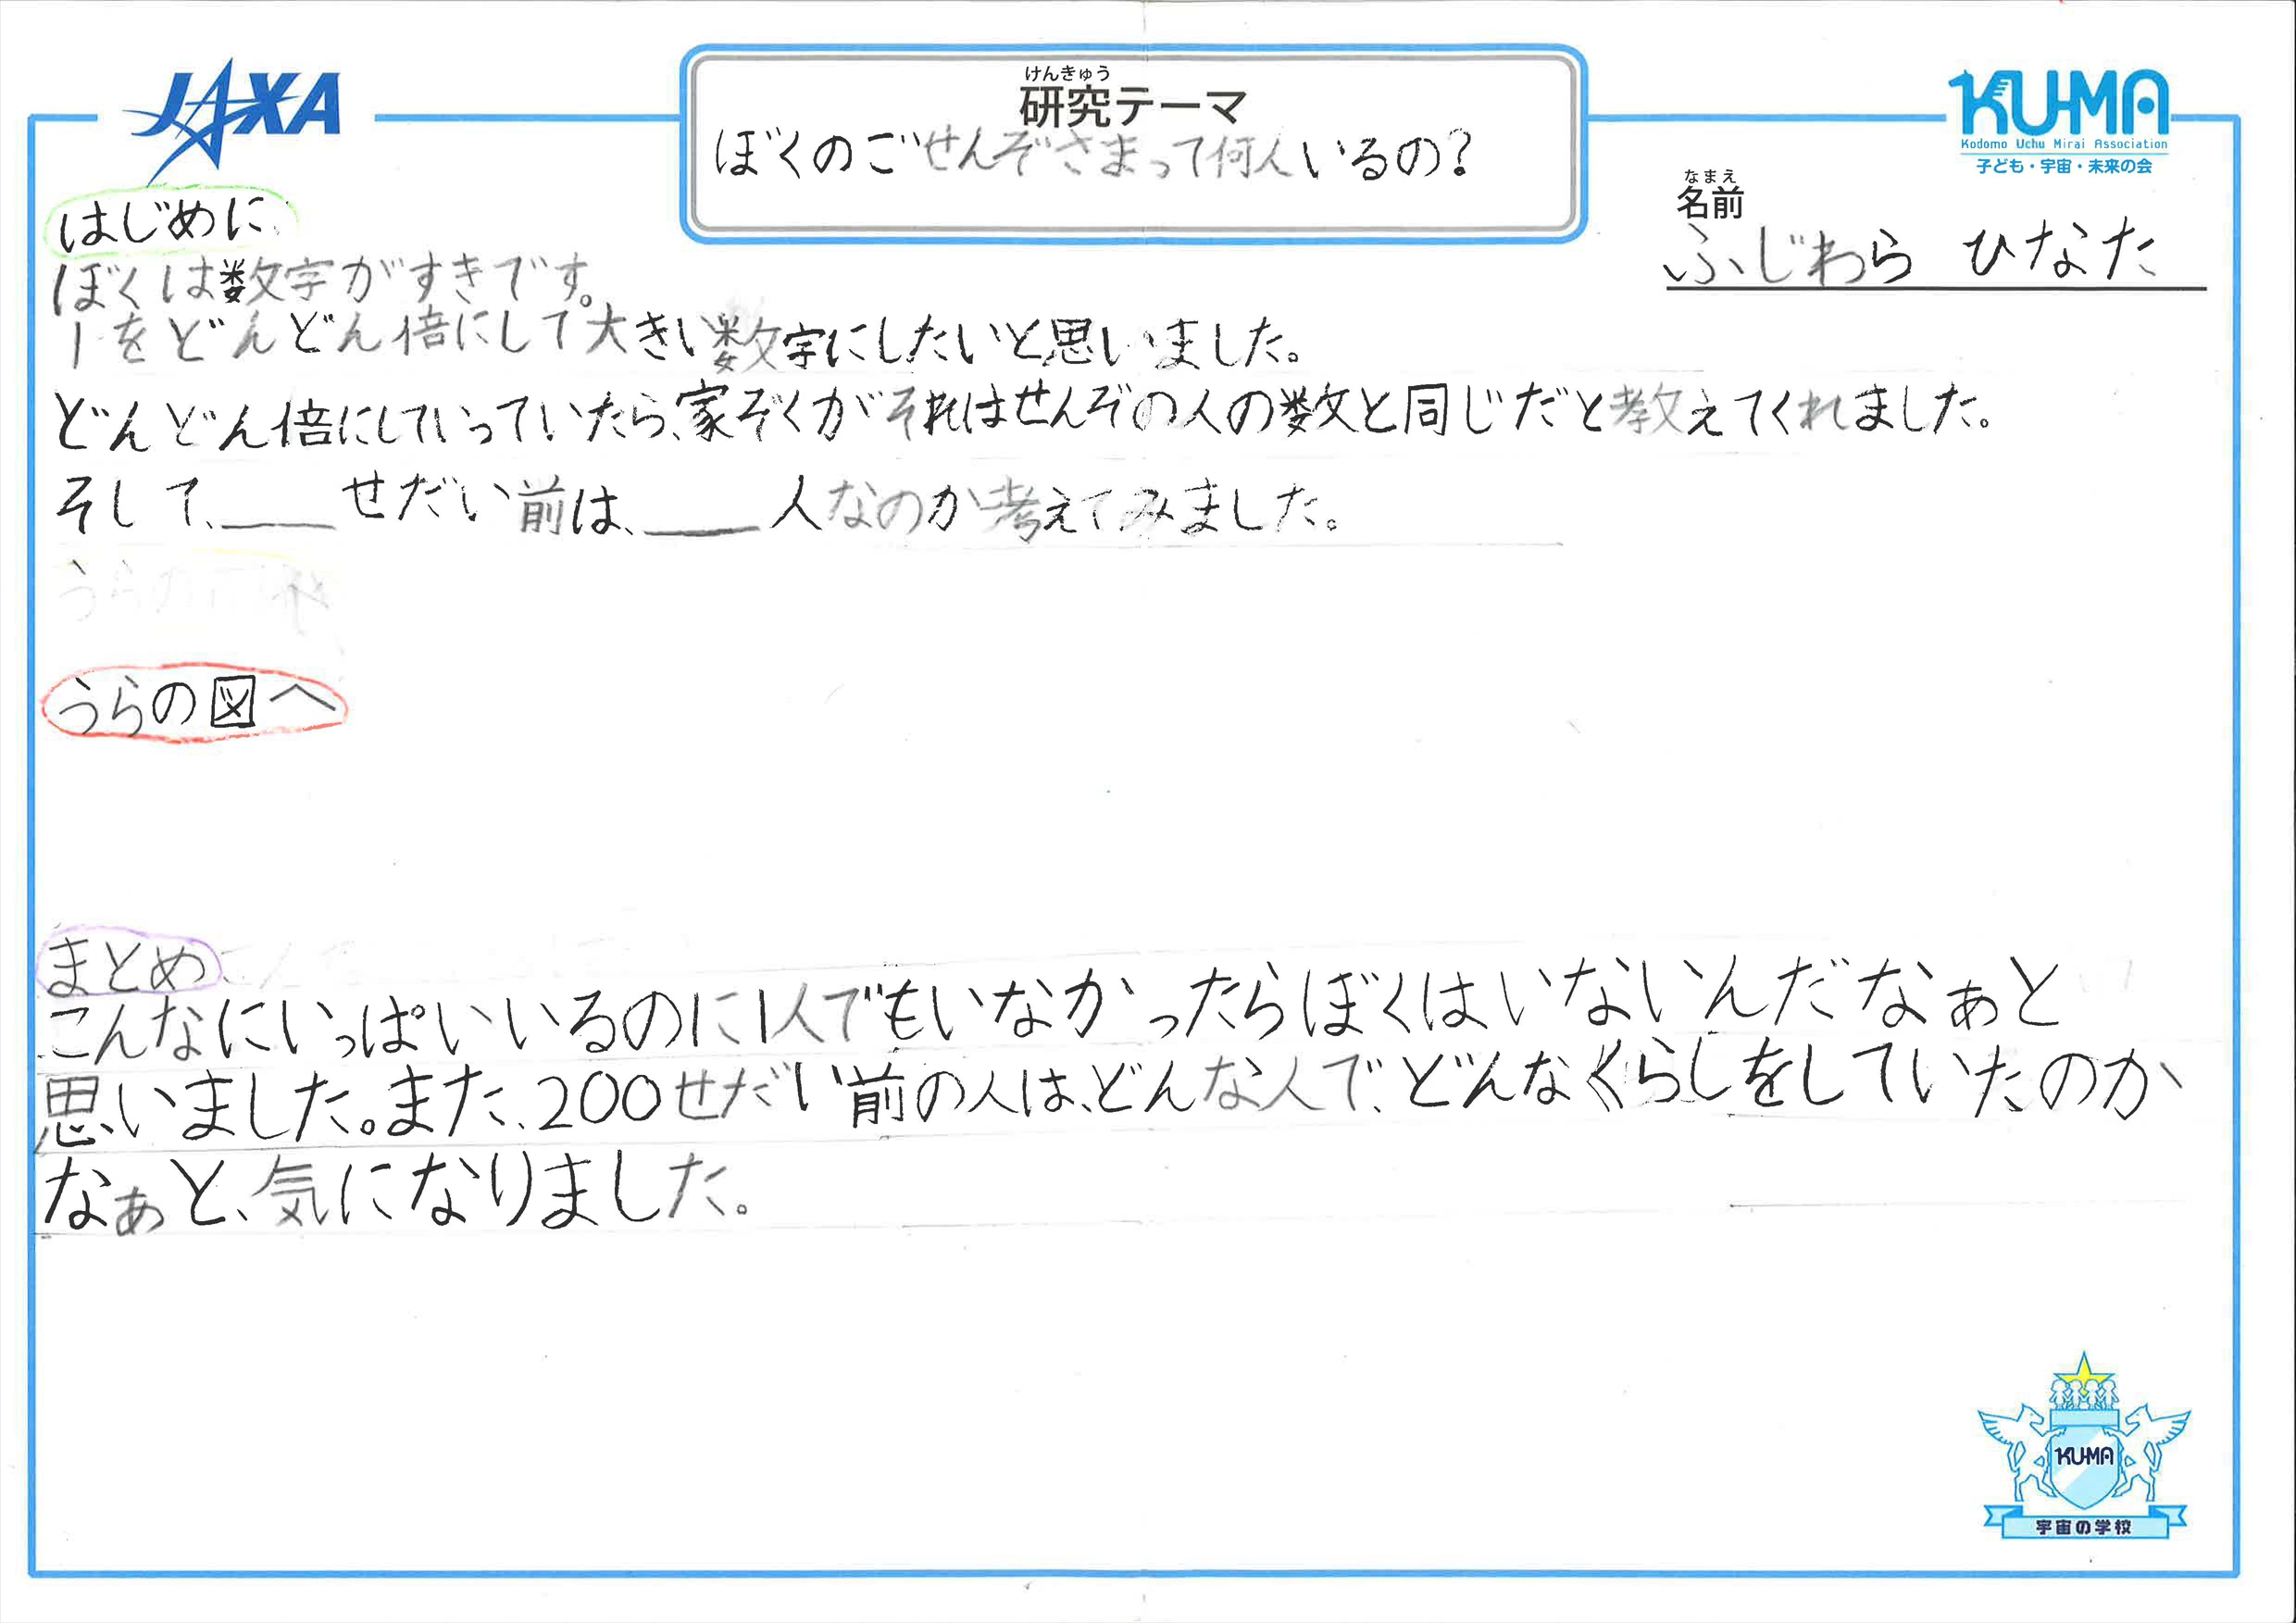 JAXA
けんきゅう
研究テーマ
ぼくのごせんぞさまって何人いるの?
KU-MA
Kodomo Uchu Mirai Association
子ども・宇宙・未来の会
なまえ
名前
ふじわら ひなた
はじめに
ぼくは数字がすきです。
1をどんどん倍にして大きい数字にしたいと思いました。
どんどん倍にしていっていたら、家ぞくがそれはせんぞの人の数と同じだと教えてくれました。
そして、___せだい前は、___人なのか考えてみました。
うらの図へ
まとめ
こんなにいっぱいいるのに1人でもいなかったらぼくはいないんだなぁと
思いました。また、200せだい前の人は、どんな人で、どんなくらしをしていたのか
なぁと、気になりました。
KU-MA
宇宙の学校